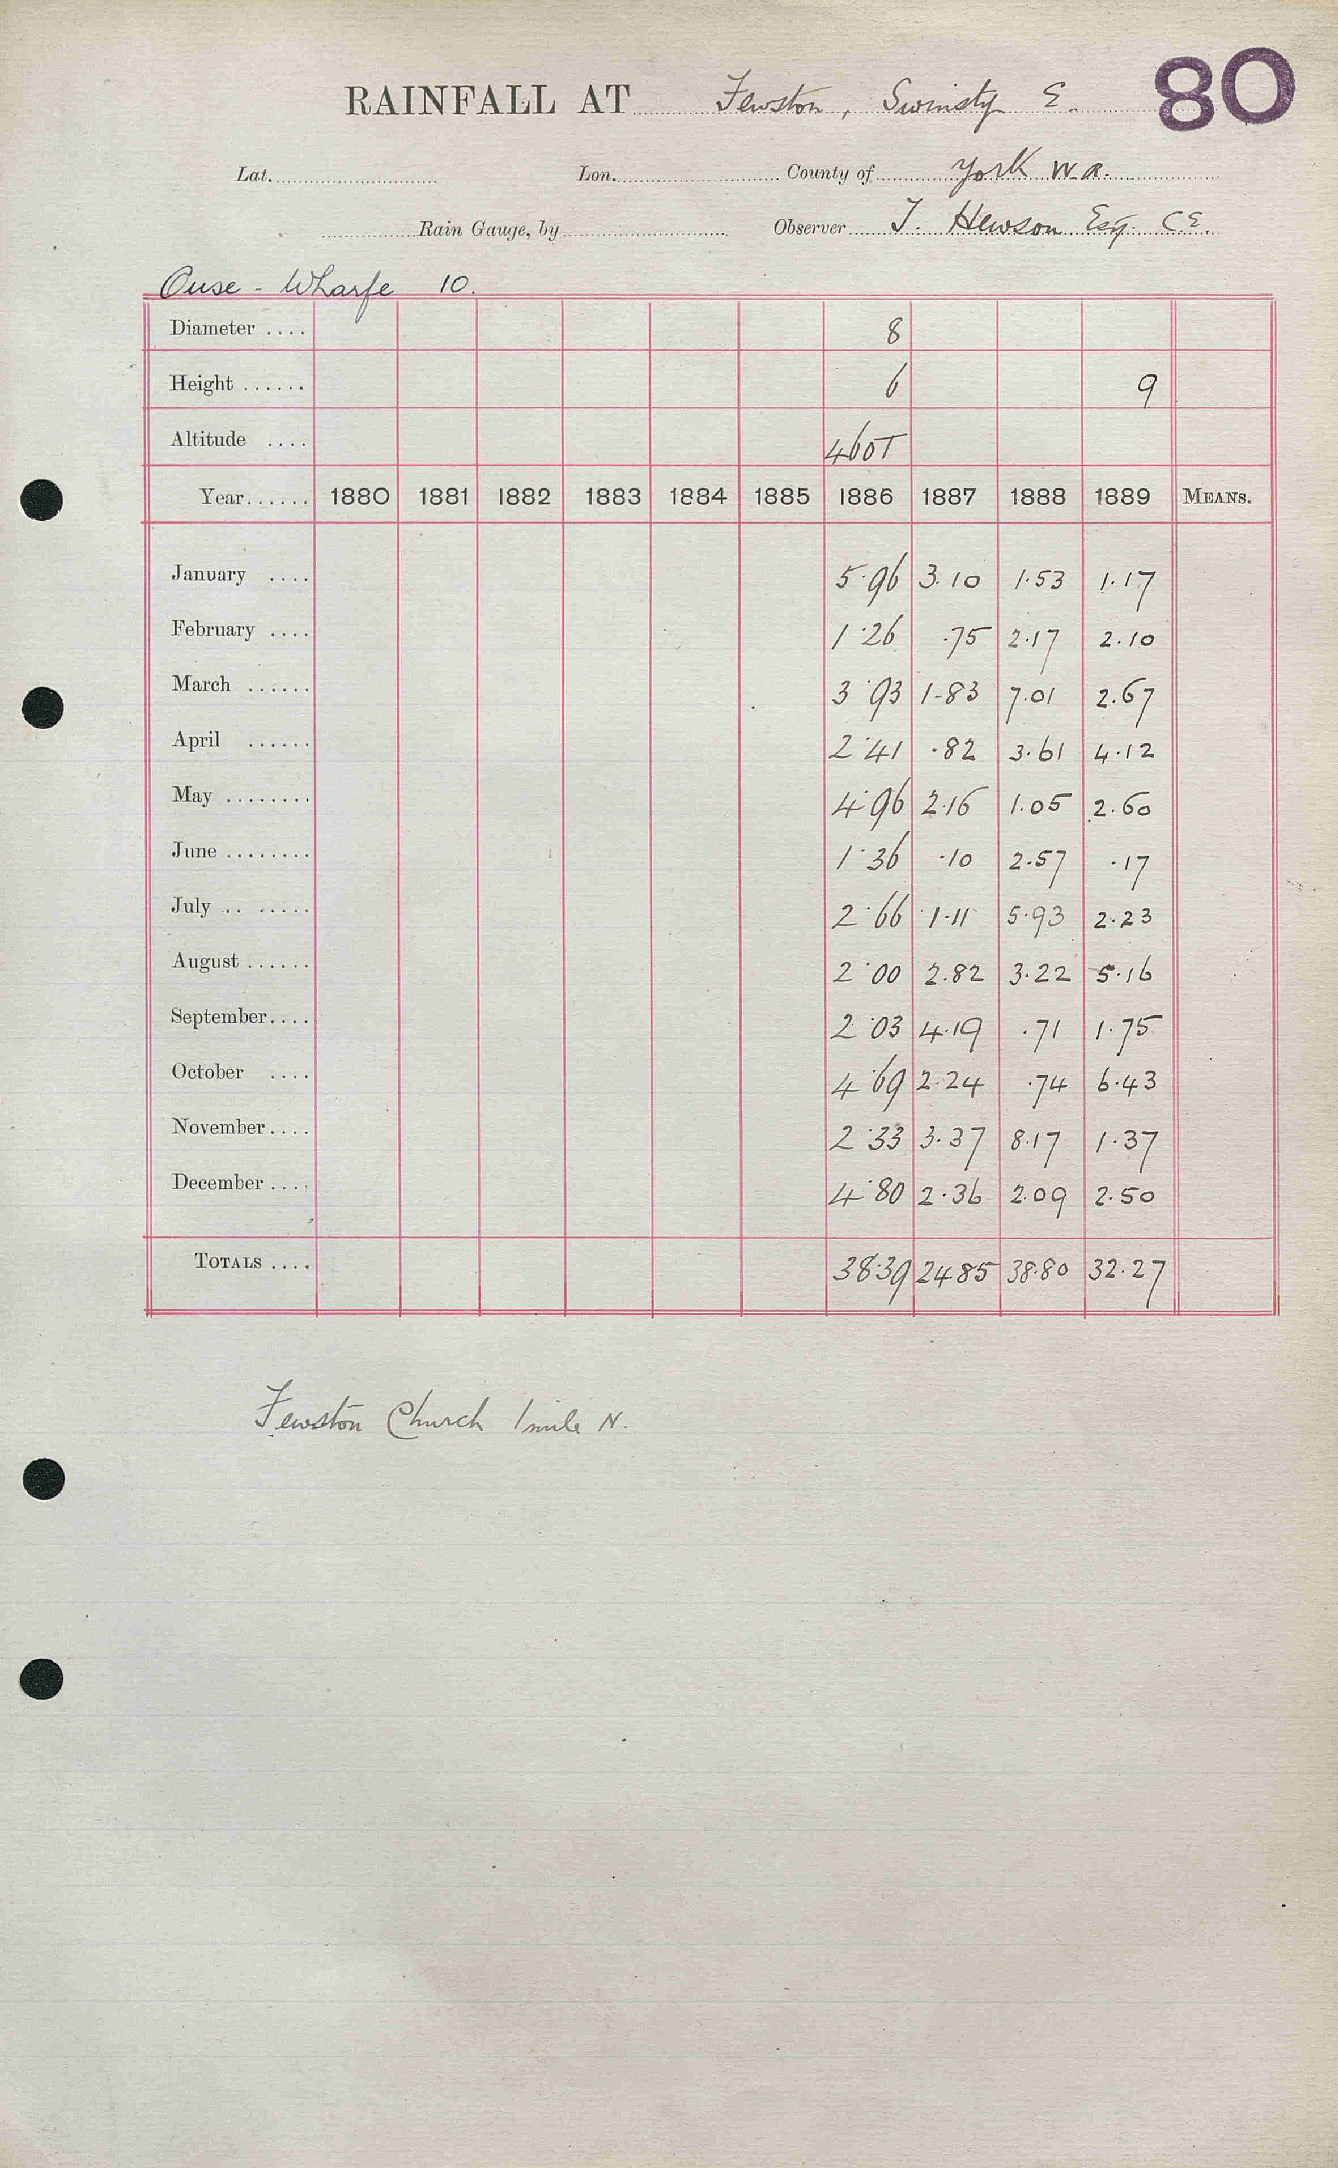 80
RAINFALL AT Fewston, Swinsty E.
Lat. Lon. County of York W.R.
Rain Gauge, by Observer T. Hewson Esq. C.E.
Ouse - Wharfe 10.
Diameter .... 8
Height ...... 6 9
Altitude .... 460T
Year...... 1880 1881 1882 1883 1884 1885 1886 1887 1888 1889 MEANS.
January .... 5.96 3.10 1.53 1.17
February .... 1.26 .75 2.17 2.10
March ...... 3.93 1.83 7.01 2.67
April ...... 2.41 .82 3.61 4.12
May ........ 4.96 2.16 1.05 2.60
June ........ 1.36 .10 2.57 .17
July .. ..... 2.66 1.11 5.93 2.23
August ...... 2.00 2.82 3.22 5.16
September.... 2.03 4.19 .71 1.75
October .... 4.69 2.24 .74 6.43
November.... 2.33 3.37 8.17 1.37
December .... 4.80 2.36 2.09 2.50
TOTALS .... 38.39 24.85 38.80 32.27
Fewston Church 1 mile N.